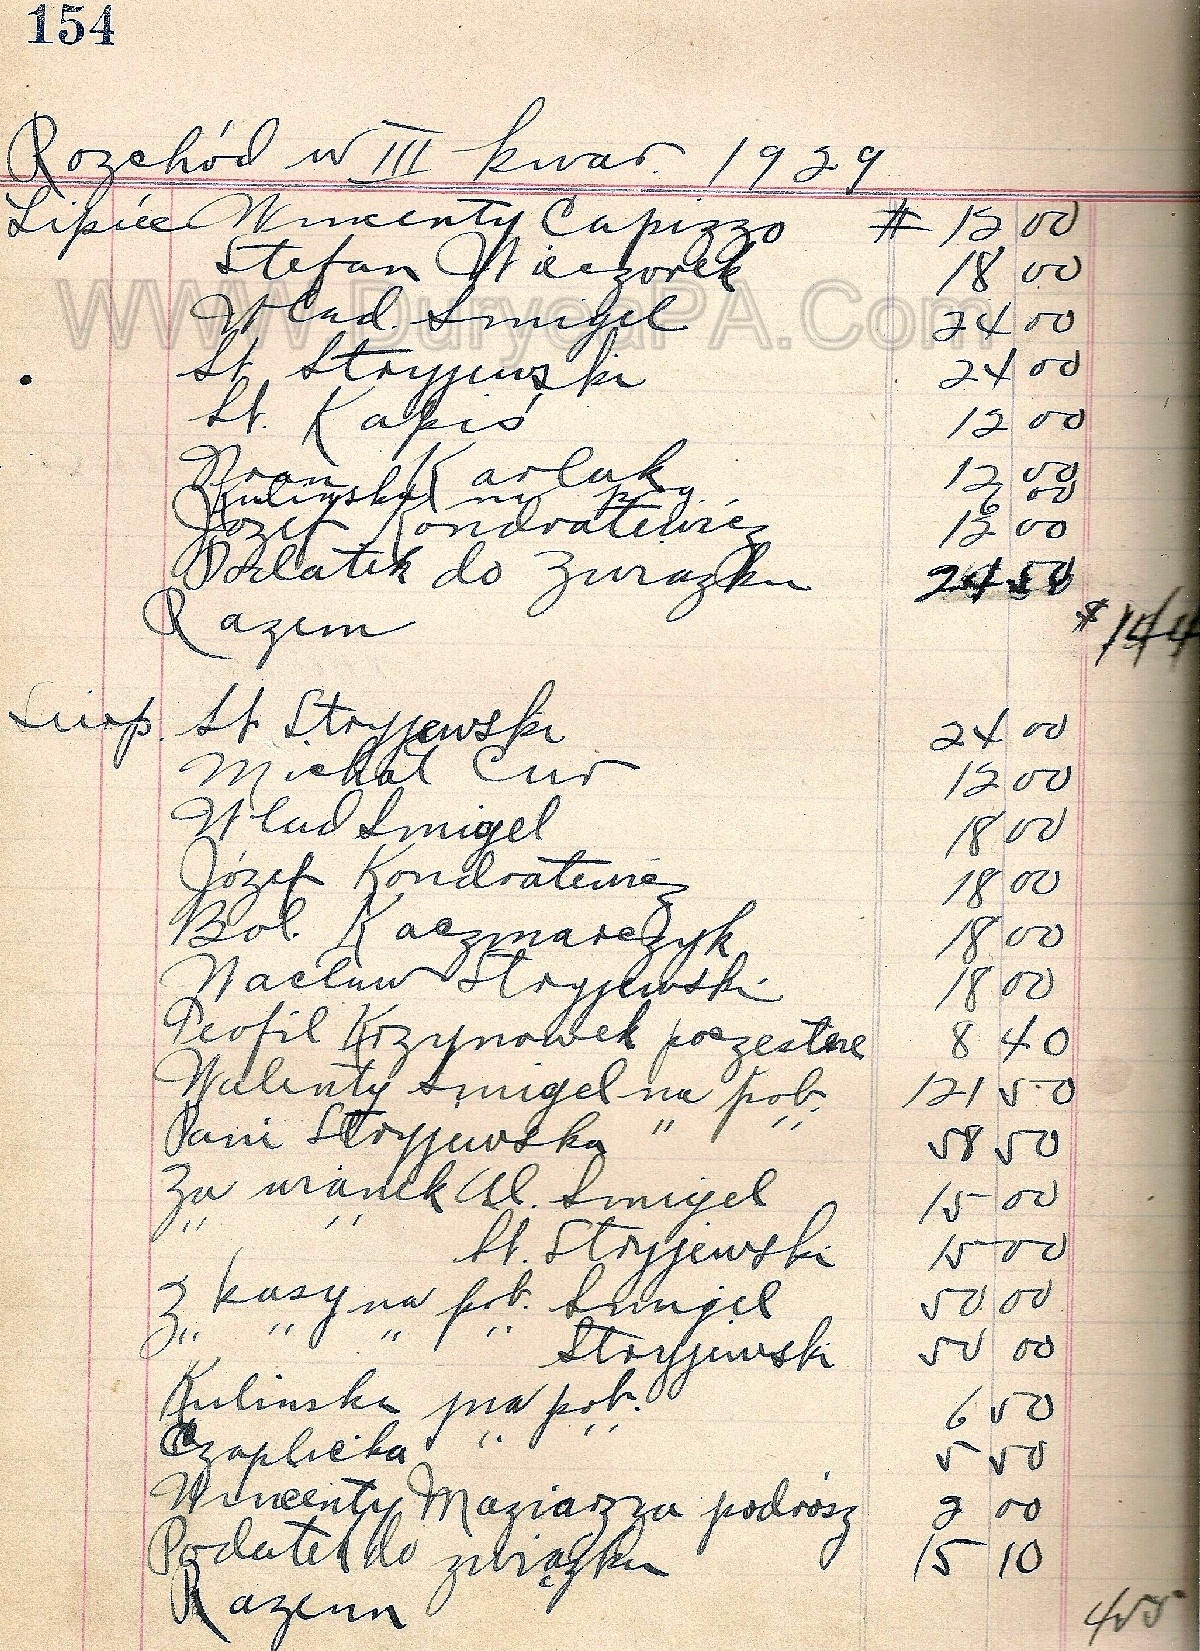 154
Rozchód w III kwar. 1929
Lipiec Wincenty Capizzo # 12 00
Stefan Wieczorek 18 00
WWW.DuryeaPA.Com
Wlad. Smigel 24 00
St. Stryjewski 24 00
St. Kapiś 12 00
Fran Karlak 12 00
Kulinska na 6 00
Józef Kondratewicz 12 00
Podatek do Zwiazku 24 50
Razem $ 144
Sierp. St. Stryjewski 24 00
Michał Cur 12 00
Wlad Smigel 18 00
Józef Kondratewicz 18 00
Bol. Kaczmarczyk 18 00
Wacław Stryjewski 18 00
Teofil Krzynowek poczestne 8 40
Walenty Smigel na pob. 121 50
Pani Stryjewska " " 58 50
Za wianek Wl. Smigel 15 00
" " St. Stryjewski 15 00
Z kasy na pob. Smigel 50 00
" " " " Stryjewski 50 00
Kulinska na pob. 6 50
Czaplicka " " 5 50
Wincenty Maziarza podrósz 2 00
Podatek do związku 15 10
Razem 455